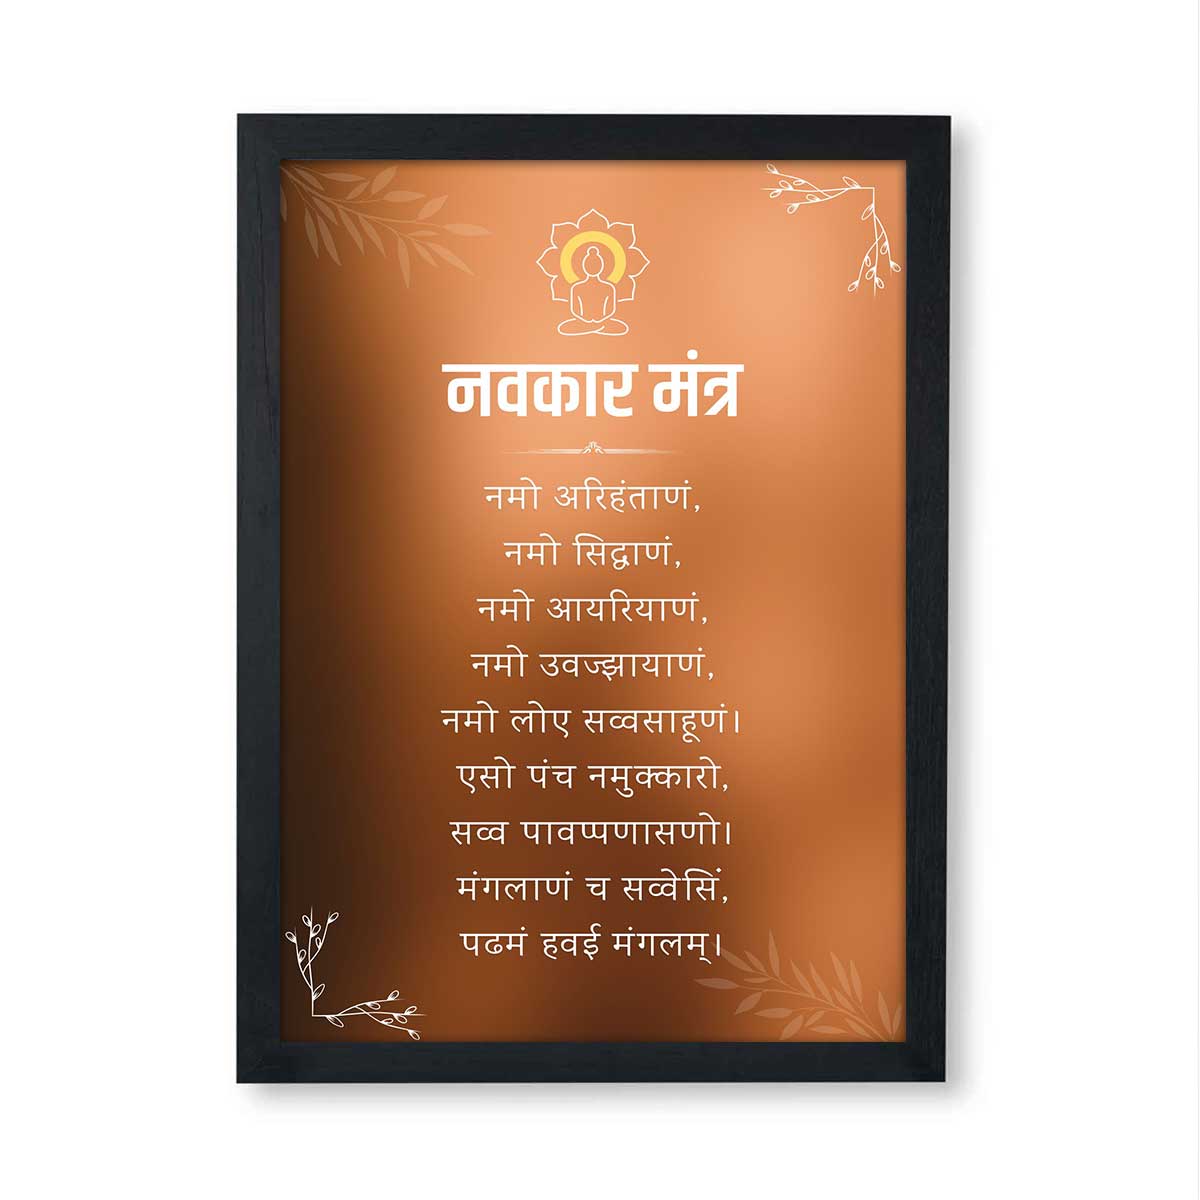 नवकार मंत्र
नमो अरिहंताणं,
नमो सिद्धाणं,
नमो आयरियाणं,
नमो उवज्झायाणं,
नमो लोए सव्वसाहूणं।
एसो पंच नमुक्कारो,
सव्व पावप्पणासणो।
मंगलाणं च सव्वेसिं,
पढमं हवई मंगलम्।